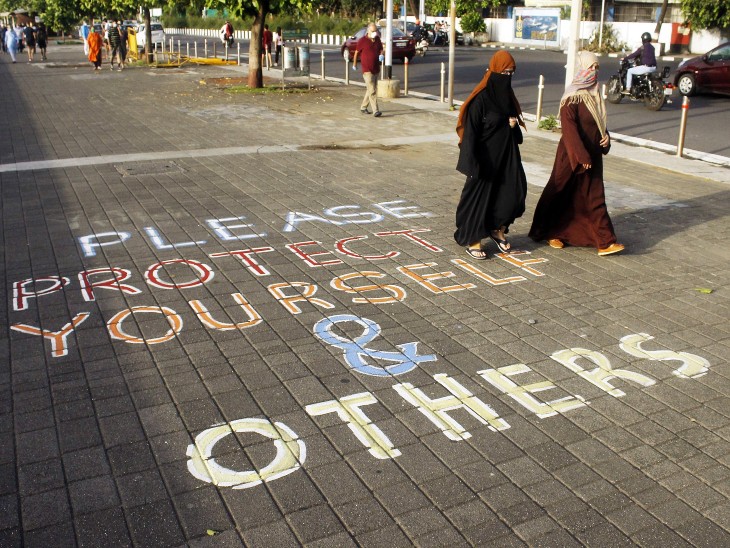 PLEASE
PROTECT
YOURSELVES
&
OTHERS